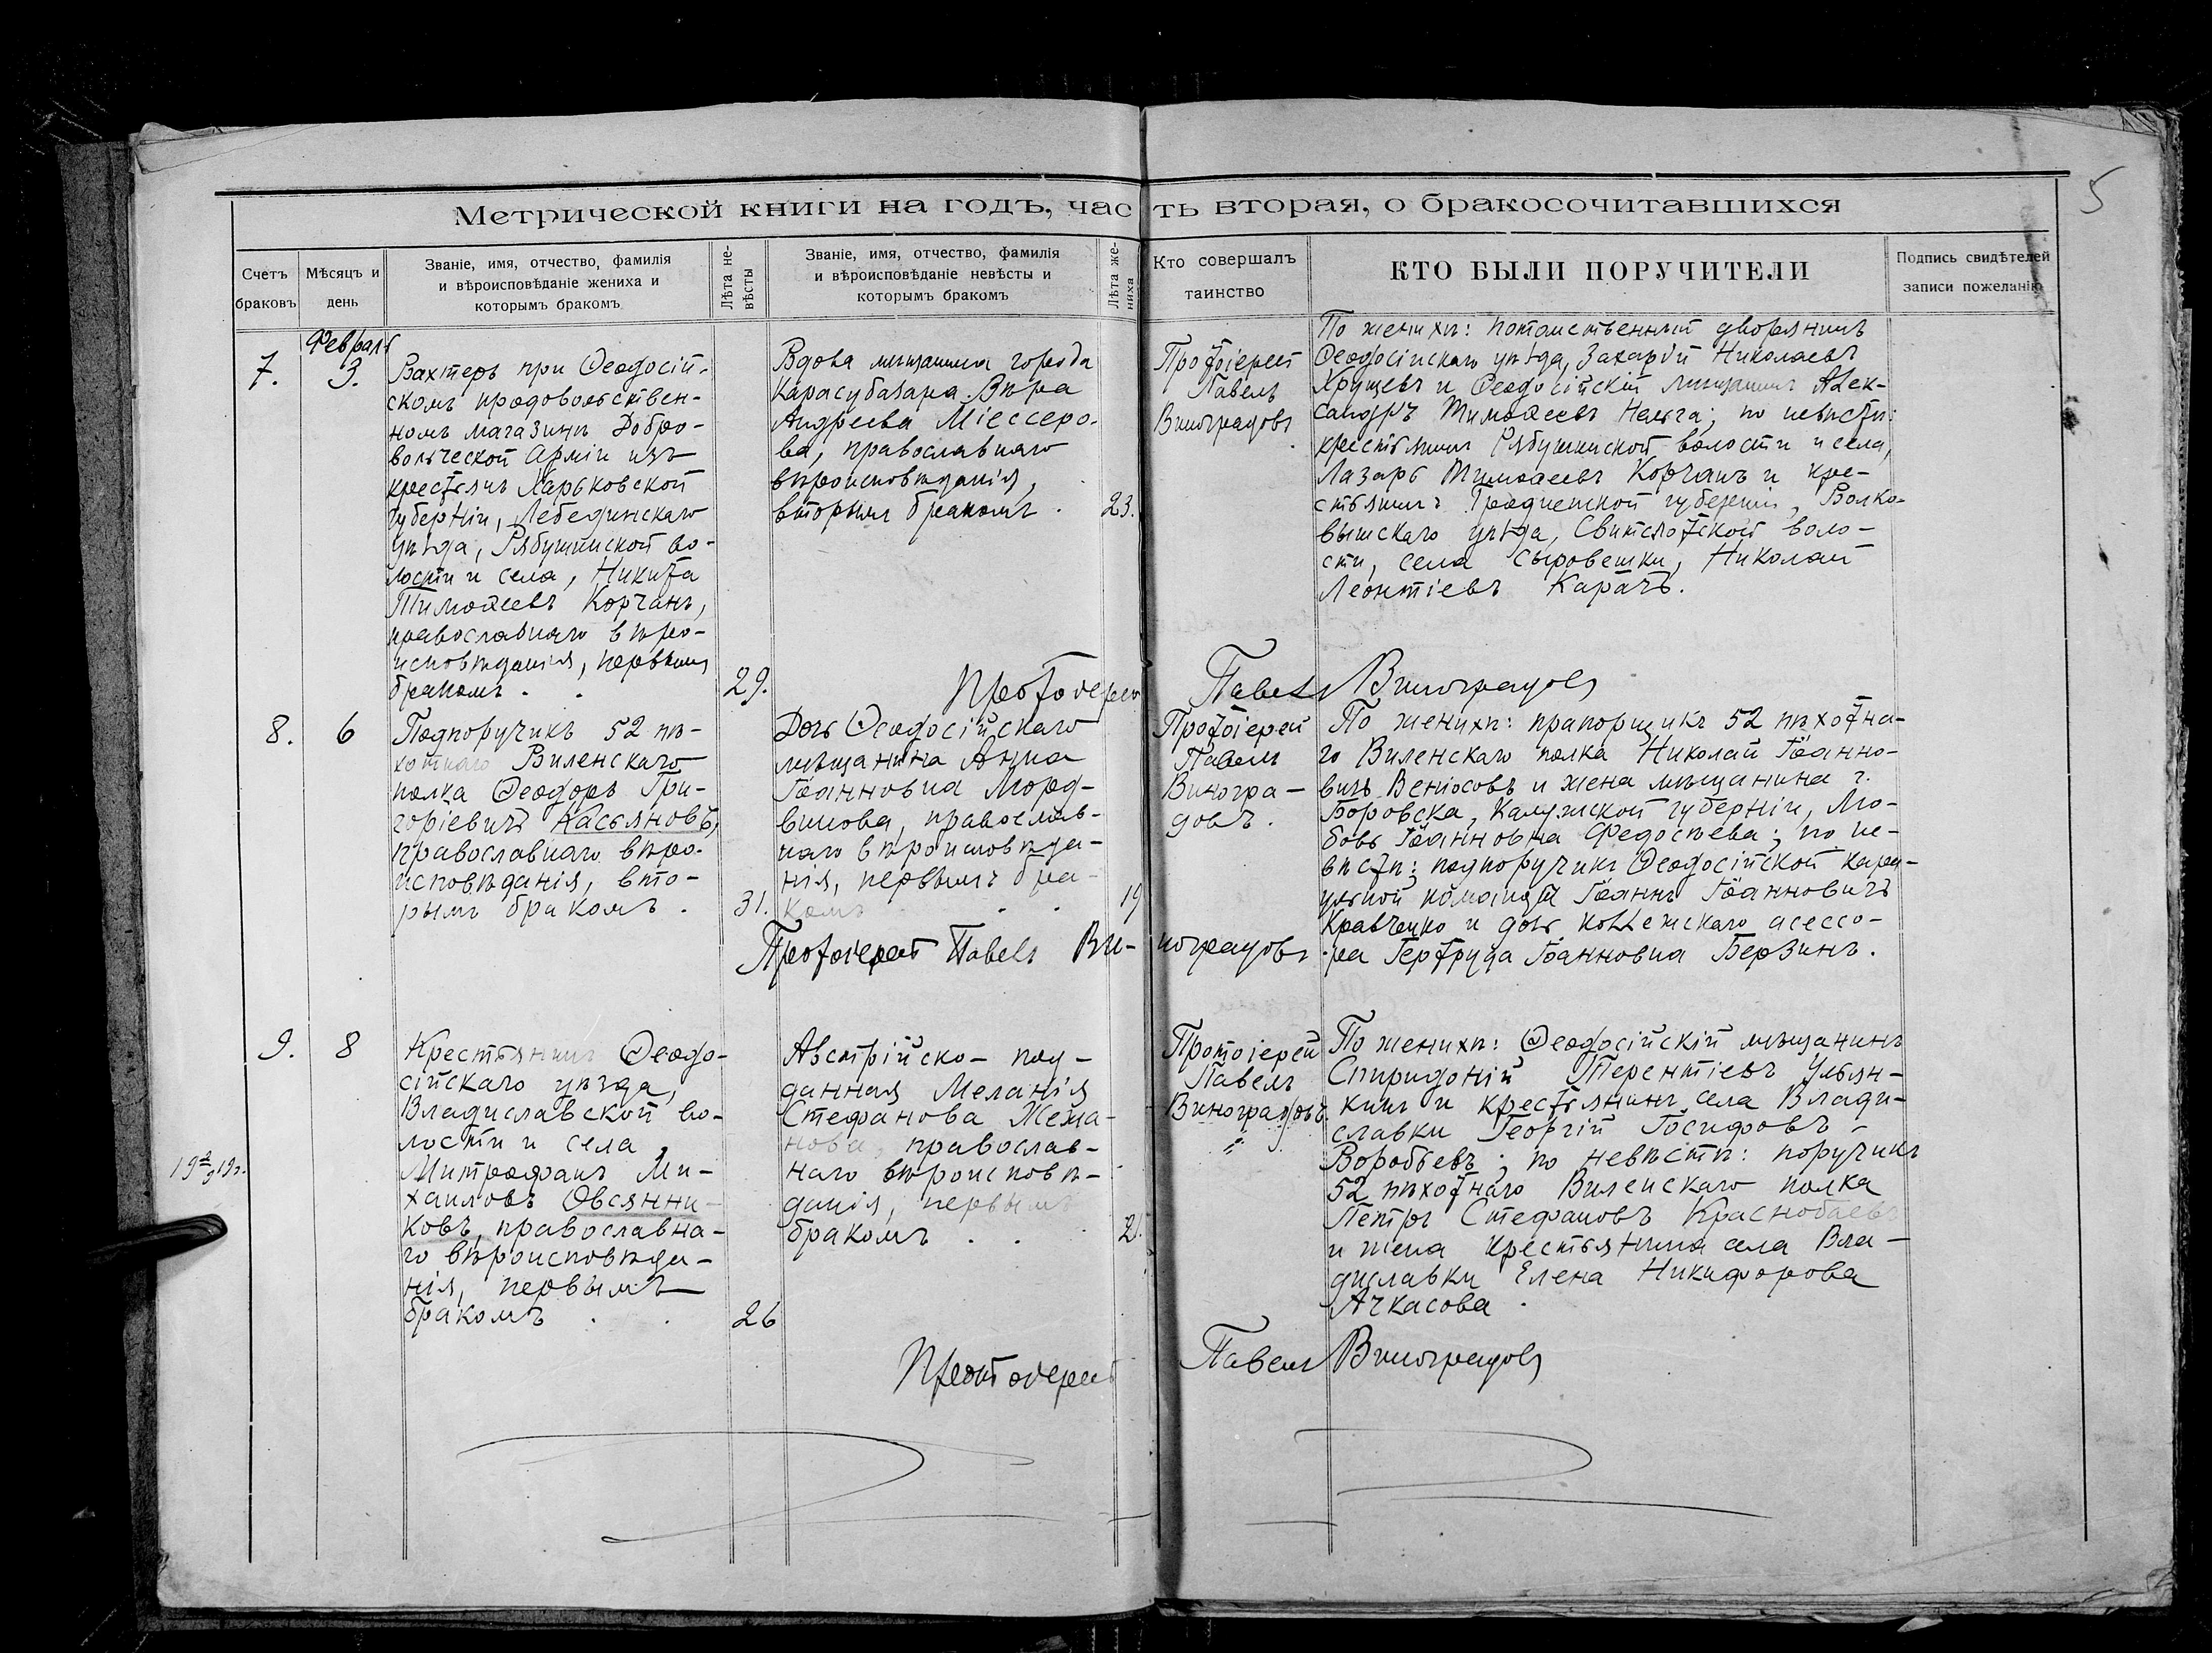 5
Метрической книги на годъ, часть вторая, о бракосочитавшихся
Счетъ браковъ
Мѣсяцъ и день
Званіе, имя, отчество, фамилія
и вѣроисповѣданіе жениха и
которымъ бракомъ
Лѣта невѣсты
Званіе, имя, отчество, фамилія
и вѣроисповѣданіе невѣсты и
которымъ бракомъ
Лѣта жениха
Кто совершалъ
таинство
КТО БЫЛИ ПОРУЧИТЕЛИ
Подпись свидѣтелей
записи пожеланію
Февраль
7.
3.
Вахтеръ при Ѳеодосій-
скомъ продовольствен-
номъ магазинѣ Добро-
вольческой Арміи изъ
крестьянъ Харьковской
губерніи, Лебединскаго
уѣзда, Рябушинской во-
лости и села, Никита
Тимоѳеевъ Корчанъ,
православнаго вѣро-
исповѣданія, первымъ
бракомъ.
29.
Вдова мѣщанина города
Карасубазара Вѣра
Андреева Міессеро-
ва, православнаго
вѣроисповѣданія,
вторымъ бракомъ.
23.
Протоіерей
Павелъ
Виноградовъ
По женихѣ: потомственный дворянинъ
Ѳеодосійскаго уѣзда, Захарій Николаевъ
Хрущевъ и Ѳеодосійскій мѣщанинъ Алек-
сандръ Тимоѳеевъ; по невѣстѣ:
крестьянинъ Рябушинской волости и села,
Лазарь Тимоѳеевъ Корчанъ и кре-
стьянинъ Гродненской губерніи, Волко-
вышскаго уѣзда, Свитслотской воло-
сти, села Сыровешки, Николай
Леонтіевъ Карачъ.
Протоіерей Павелъ Виноградовъ
8.
6
Подпоручикъ 52 пѣ-
хотнаго Виленскаго
полка Ѳеодоръ Гри-
горіевичъ Касьяновъ,
православнаго вѣро-
исповѣданія, вто-
рымъ бракомъ.
31.
Дочь Ѳеодосійскаго
мѣщанина Анна
Іоанновна Морд-
винова, православ-
наго вѣроисповѣда-
нія, первымъ бра-
комъ
19
Протоіерей
Павелъ
Виногра-
довъ.
По женихѣ: прапорщикъ 52 пѣхотна-
го Виленскаго полка Николай Іоанно-
вичъ Веніосовъ и жена мѣщанина г.
Боровска, Калужской губерніи, Лю-
бовь Іоанновна Федосѣева; по не-
вѣстѣ: подпоручикъ Ѳеодосійской кара-
ульной команды Іоаннъ Іоанновичъ
Кравченко и дочь коллежскаго асессо-
ра Гертруда Іоанновна Берзинъ.
Протоіерей Павелъ Виноградовъ
9.
8
Крестьянинъ Ѳеодо-
сійскаго уѣзда,
Владиславской во-
лости и села
Митрофанъ Ми-
хаиловъ Овсянни-
ковъ, православна-
го вѣроисповѣда-
нія, первымъ
бракомъ
26
Австрійско-под-
данная Меланія
Стефанова
православ-
наго вѣроисповѣ-
данія, первымъ
бракомъ
21.
Протоіерей
Павелъ
Виноградовъ.
По женихѣ: Ѳеодосійскій мѣщанинъ
Спиридоній Терентіевъ Ульян-
кинъ и крестьянинъ села Влади-
славки Георгій Іосифовъ
Воробьевъ; по невѣстѣ: поручикъ
52 пѣхотнаго Виленскаго полка
Петръ Стефановъ Краснобаевъ
и жена крестьянина села Вла-
диславки Елена Никифорова
Ачкасова.
Протоіерей Павелъ Виноградовъ